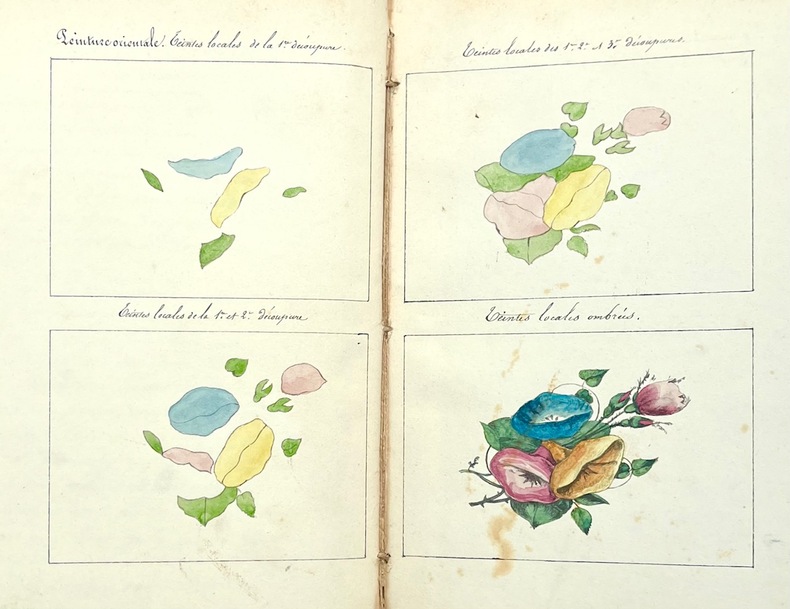 Peinture orientale. Teintes locales de la 1re découpure.
Teintes locales de la 1re et 2e découpure
Teintes locales des 1re 2e et 3e découpures.
Teintes locales ombrées.